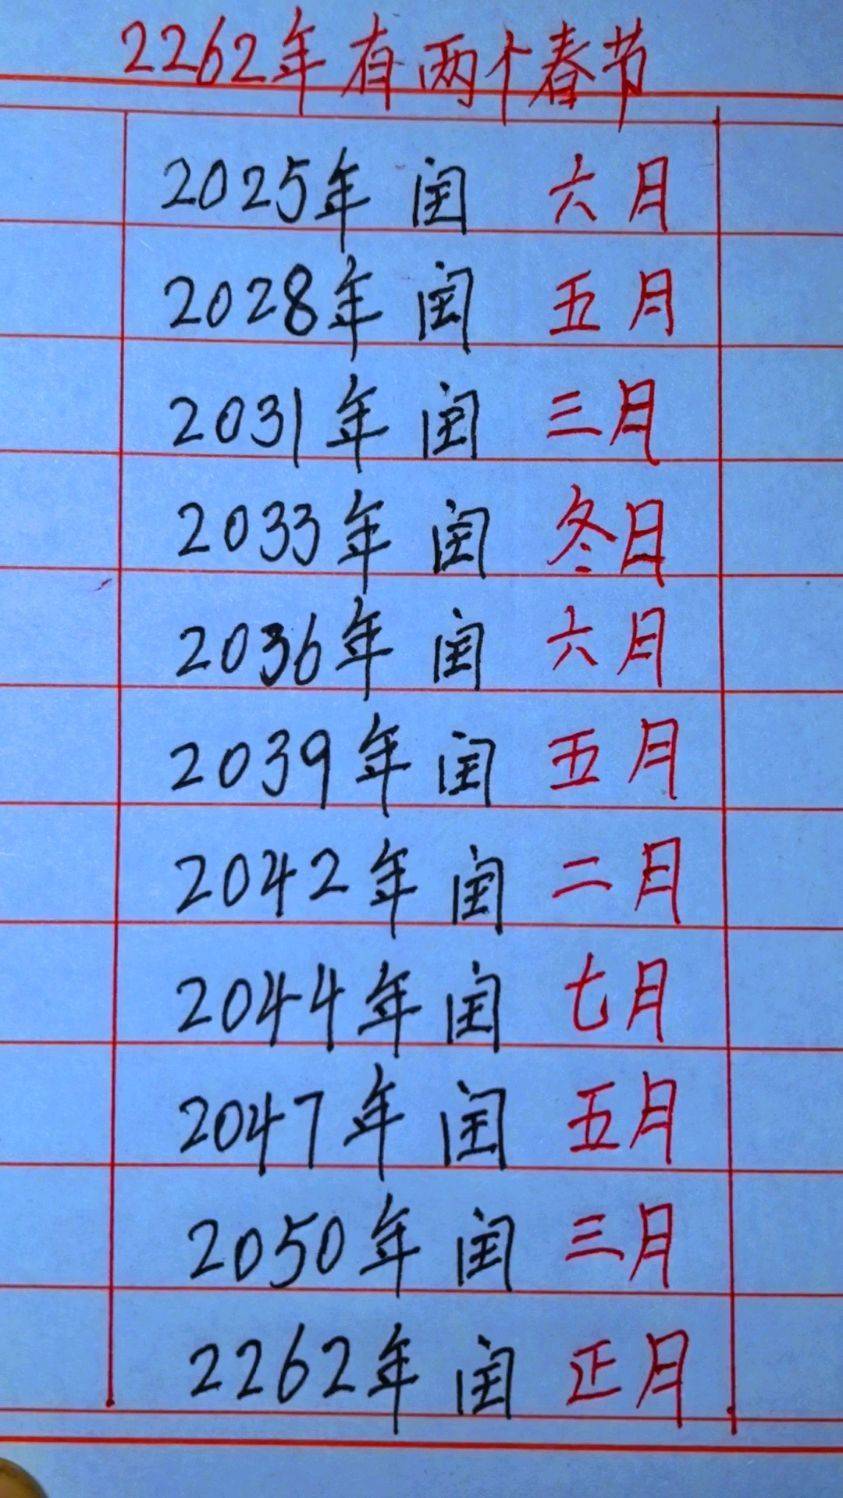 2262年有两个春节
2025年 闰 六月
2028年 闰 五月
2031年 闰 三月
2033年 闰 冬月
2036年 闰 六月
2039年 闰 五月
2042年 闰 二月
2044年 闰 七月
2047年 闰 五月
2050年 闰 三月
2262年 闰 正月